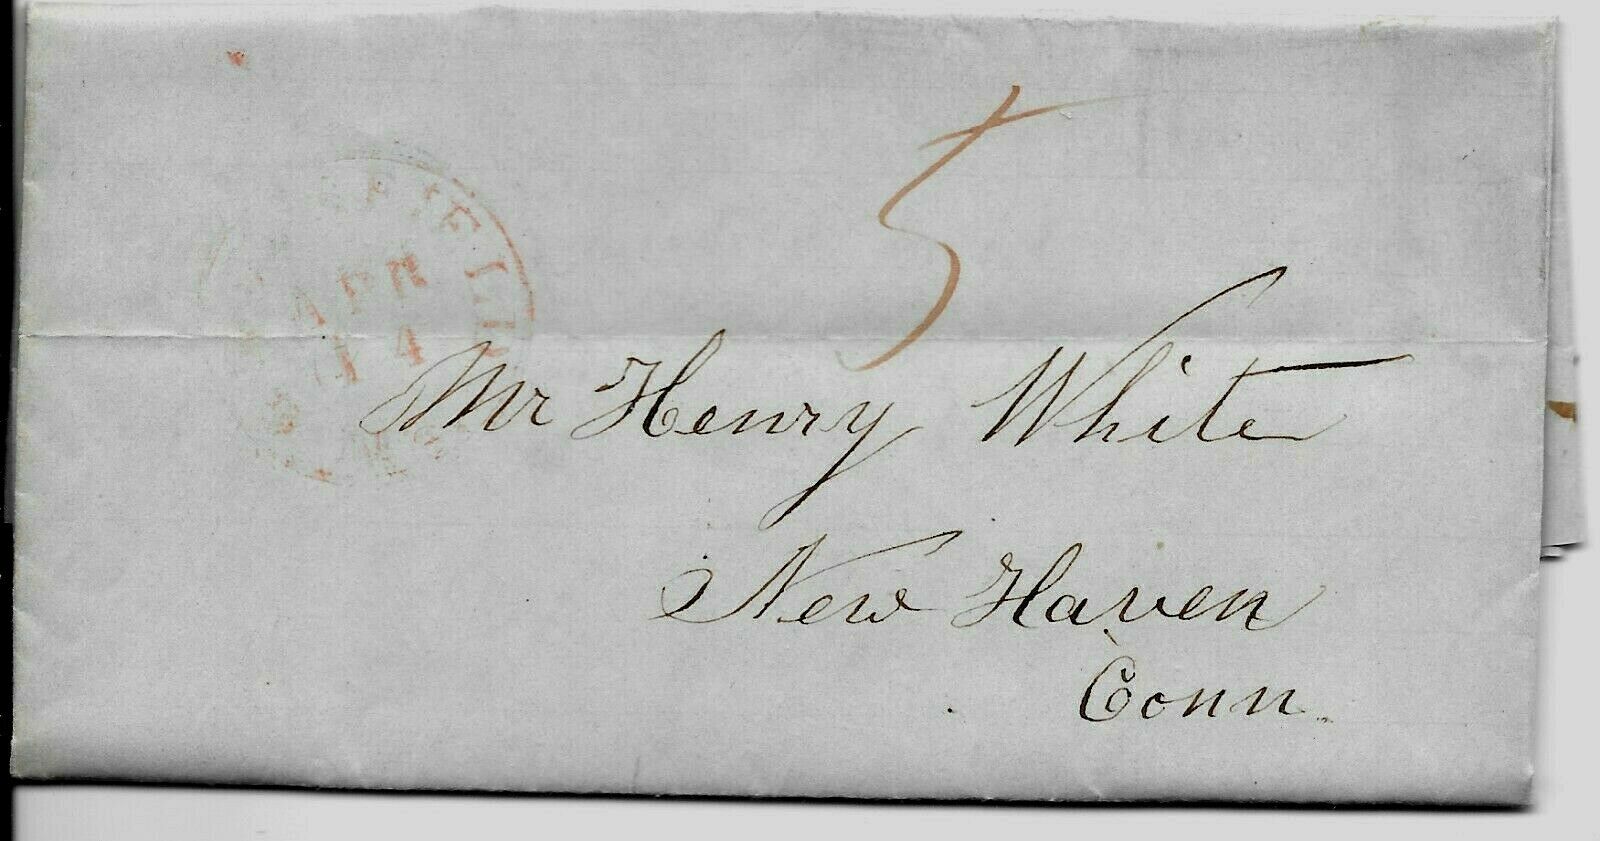 5
APR
14
Mr Henry White
New Haven
Conn.